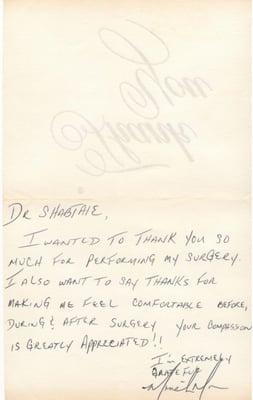 Dr SHABTAIE,
I WANTED TO THANK YOU SO
MUCH FOR PERFORMING MY SURGERY.
I ALSO WANT TO SAY THANKS FOR
MAKING ME FEEL COMFORTABLE BEFORE,
DURING & AFTER SURGERY YOUR COMPASSION
IS GREATLY APPRECIATED!!
I'm EXTREMELY
GRATEFUL